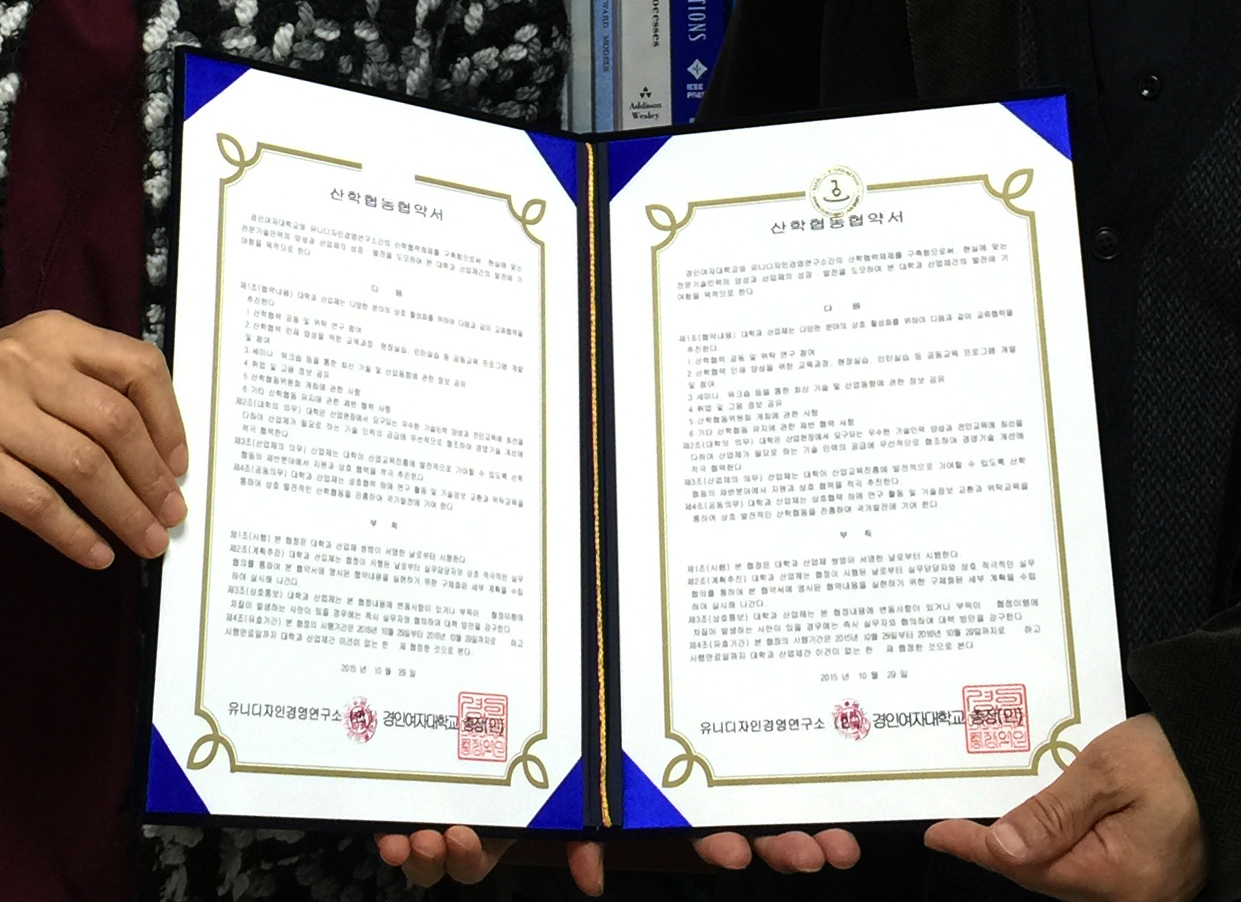 WARD MODELS
ocesses
Addison
Wesley
TIONS
IEEE
산학협동협약서
경인여자대학교와 유니디자인경영연구소간의 산학협력체제를 구축함으로써 현실에 맞는
전문기술인력의 양성과 산업체의 성장 발전을 도모하여 본 대학과 산업체간의 발전에 기
여함을 목적으로 한다
다 음
제1조(협약내용) 대학과 산업체는 다양한 분야의 상호 활성화를 위하여 다음과 같이 교류협력을
추진한다
1 산학협력 공동 및 위탁 연구 참여
2 산학협력 인재 양성을 위한 교육과정, 현장실습, 인턴실습 등 공동교육 프로그램 개발
및 참여
3.세미나, 워크숍 등을 통한 최신 기술 및 산업동향에 관한 정보 공유
4 취업 및 고용 정보 공유
5 산학협동위원회 개최에 관한 사항
6 기타 산학협동 유지에 관한 제반 협력 사항
제2조(대학의 의무) 대학은 산업현장에서 요구되는 우수한 기술인력 양성과 전인교육에 최선을
다하여 산업체가 필요로 하는 기술 인력의 공급에 우선적으로 협조하여 경영기술 개선에
적극 협력한다
제3조(산업체의 의무) 산업체는 대학이 산업교육진흥에 발전적으로 기여할 수 있도록 산학
협동의 제반분야에서 지원과 상호 협력을 적극 추진한다
제4조(공동의무) 대학과 산업체는 상호협력 하에 연구 활동 및 기술정보 교환과 위탁교육을
통하여 상호 발전적인 산학협동을 진흥하여 국가발전에 기여 한다
부 칙
제1조(시행) 본 협정은 대학과 산업체 쌍방이 서명한 날로부터 시행한다.
제2조(계획추진) 대학과 산업체는 협정이 시행된 날로부터 실무담당자의 상호 적극적인 실무
협의를 통하여 본 협약서에 명시된 협약내용을 실현하기 위한 구체화된 세부 계획을 수립
하여 실시해 나간다.
제3조(상호통보) 대학과 산업체는 본 협정내용에 변동사항이 있거나 부득이 협정이행에
차질이 발생하는 사안이 있을 경우에는 즉시 실무자와 협의하여 대책 방안을 강구한다
제4조(유효기간) 본 협정의 시행기간은 2015년 10월 29일부터 2016년 10월 29일까지로 하고
시행만료일까지 대학과 산업체간 이견이 없는 한 재 협정한 것으로 본다.
2015 년 10 월 29 일
유니디자인경영연구소 (인) 경인여자대학교 총장(인)
산학협동협약서
경인여자대학교와 유니디자인경영연구소간의 산학협력체제를 구축함으로써 현실에 맞는
전문기술인력의 양성과 산업체의 성장 발전을 도모하여 본 대학과 산업체간의 발전에 기
여함을 목적으로 한다
다 음
제1조(협약내용) 대학과 산업체는 다양한 분야의 상호 활성화를 위하여 다음과 같이 교류협력을
추진한다
1 산학협력 공동 및 위탁 연구 참여
2 산학협력 인재 양성을 위한 교육과정, 현장실습, 인턴실습 등 공동교육 프로그램 개발
및 참여
3.세미나, 워크숍 등을 통한 최신 기술 및 산업동향에 관한 정보 공유
4 취업 및 고용 정보 공유
5 산학협동위원회 개최에 관한 사항
6 기타 산학협동 유지에 관한 제반 협력 사항
제2조(대학의 의무) 대학은 산업현장에서 요구되는 우수한 기술인력 양성과 전인교육에 최선을
다하여 산업체가 필요로 하는 기술 인력의 공급에 우선적으로 협조하여 경영기술 개선에
적극 협력한다
제3조(산업체의 의무) 산업체는 대학이 산업교육진흥에 발전적으로 기여할 수 있도록 산학
협동의 제반분야에서 지원과 상호 협력을 적극 추진한다
제4조(공동의무) 대학과 산업체는 상호협력 하에 연구 활동 및 기술정보 교환과 위탁교육을
통하여 상호 발전적인 산학협동을 진흥하여 국가발전에 기여 한다
부 칙
제1조(시행) 본 협정은 대학과 산업체 쌍방이 서명한 날로부터 시행한다.
제2조(계획추진) 대학과 산업체는 협정이 시행된 날로부터 실무담당자와 상호 적극적인 실무
협의를 통하여 본 협약서에 명시된 협약내용을 실현하기 위한 구체화된 세부 계획을 수립
하여 실시해 나간다.
제3조(상호통보) 대학과 산업체는 본 협정내용에 변동사항이 있거나 부득이 협정이행에
차질이 발생하는 사안이 있을 경우에는 즉시 실무자와 협의하여 대책 방안을 강구한다
제4조(유효기간) 본 협정의 시행기간은 2015년 10월 29일부터 2016년 10월 29일까지로 하고
시행만료일까지 대학과 산업체간 이견이 없는 한 재 협정한 것으로 본다
2015 년 10 월 29 일
유니디자인경영연구소 (인) 경인여자대학교 총장(인)